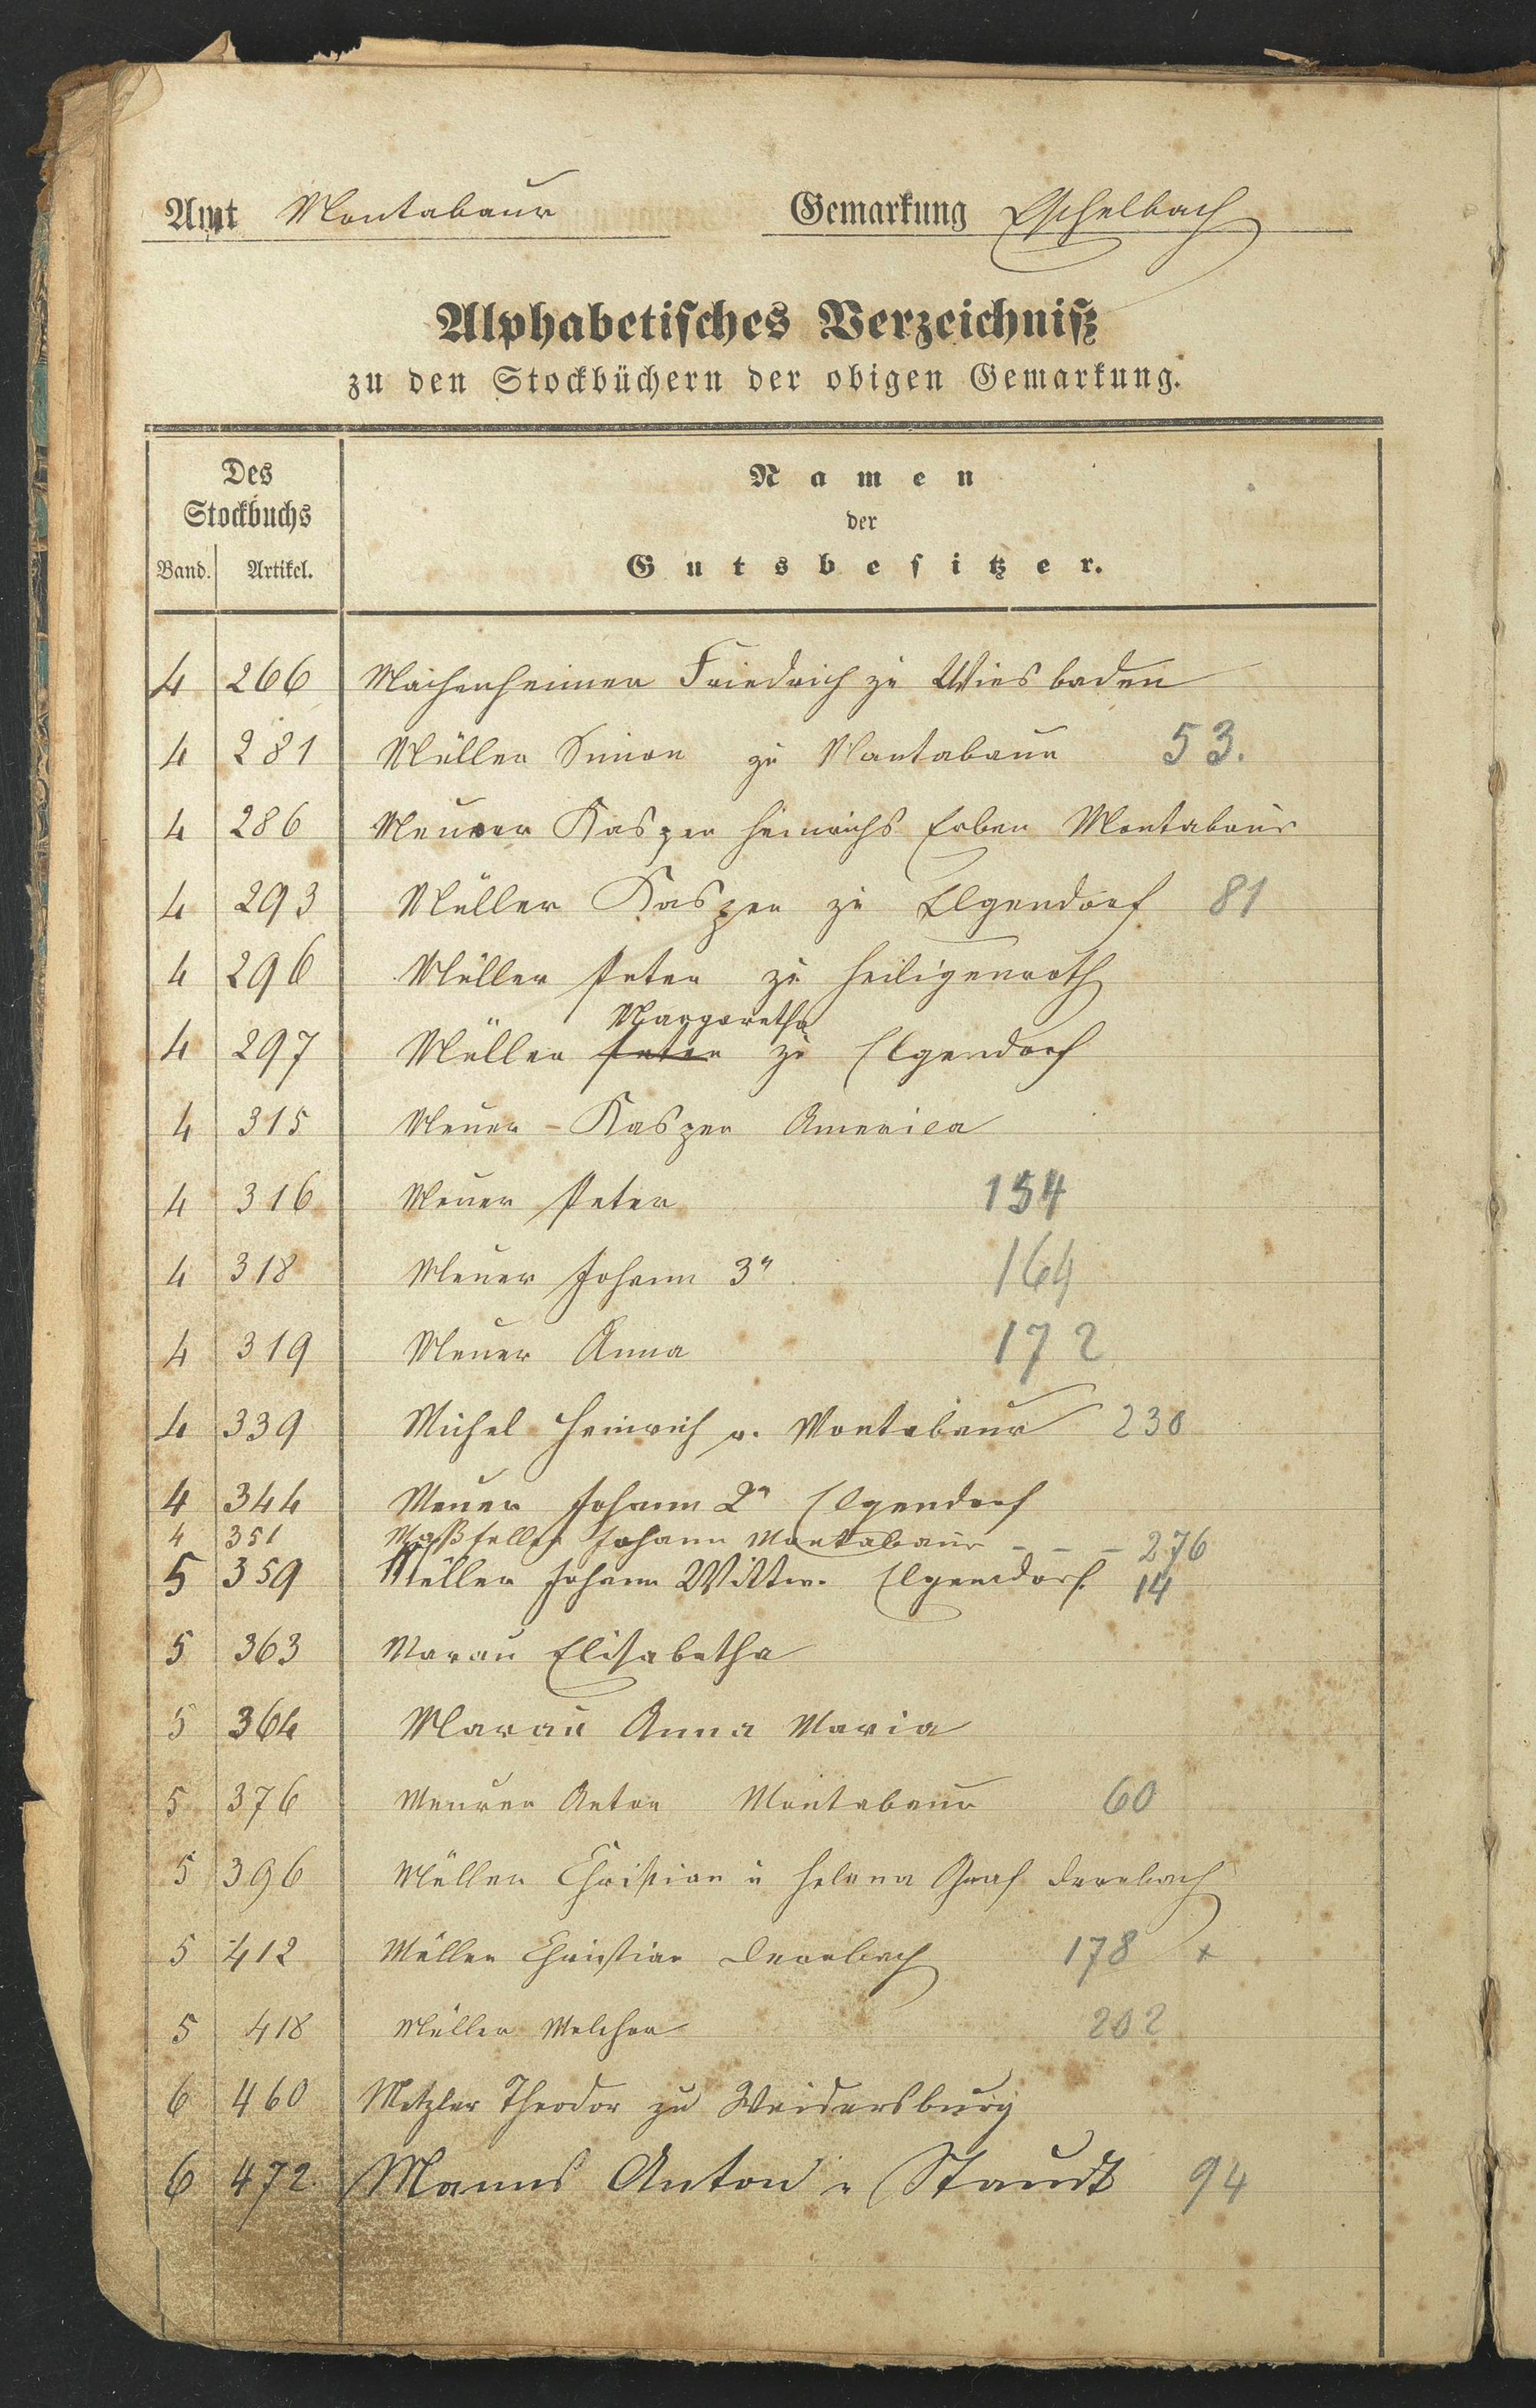 Amt Montabaur Gemarkung Eschelbach
Alphabetisches Verzeichniß
zu den Stockbüchern der obigen Gemarkung.
Des Stockbuchs
Namen
der
Gutsbesitzer.
Band. Artikel.
4 266 Friedrich zu Wiesbaden
4 281 Müller Simon zu Montabaur 53.
4 286 Meurer Kasper Heinrichs Erben Montabaur
4 293 Müller Kasper zu Elgendorf 81
4 296 Müller Peter zu Heiligenroth
Margaretha
4 297 Müller Peter zu Elgendorf
4 315 Meuer Kasper America
4 316 Meuer Peter 154
4 318 Meuer Johann 3r 164
4 319 Meuer Anna 172
4 339 Michel Heinrich v. Montabaur 230
4 344 Meuer Johann 2r Elgendorf
4 351 Maßfeller Johann Montabaur - - - 276
5 359 Müller Johann Wittw. Elgendorf. 14
5 363 Marau Elisabetha
5 364 Marau Anna Maria
5 376 Meurer Anton Montabaur 60
5 396 Müller Christian u Helena Graf Dernbach
5 412 Müller Christian Dernbach 178 x
5 418 Müller Melchor 202
6 460 Metzler Theodor zu Weidersburg
6 472. Manns Anton v Staudt 94